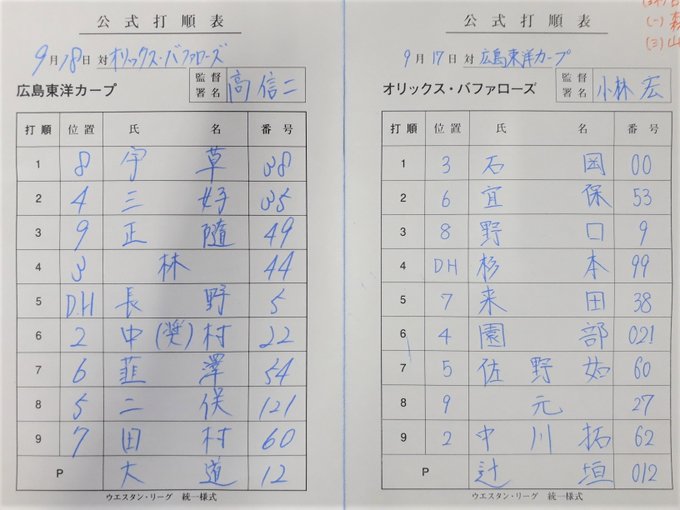 公式打順表
9月18日 対 オリックス・バファローズ
広島東洋カープ 監督署名 高 信二
打順 位置 氏名 番号
1 8 宇草 38
2 4 三好 35
3 9 正隨 49
4 3 林 44
5 DH 長野 5
6 2 中(奨)村 22
7 6 韮澤 54
8 5 二俣 121
9 7 田村 60
P 大道 12
ウエスタン・リーグ 統一様式
公式打順表
9月17日 対 広島東洋カープ
オリックス・バファローズ 監督署名 小林 宏
打順 位置 氏名 番号
1 3 石岡 00
2 6 宜保 53
3 8 野口 9
4 DH 杉本 99
5 7 来田 38
6 4 園部 021
7 5 佐野如 60
8 9 元 27
9 2 中川拓 62
P 辻垣 012
ウエスタン・リーグ 統一様式
(一)
(三) 山